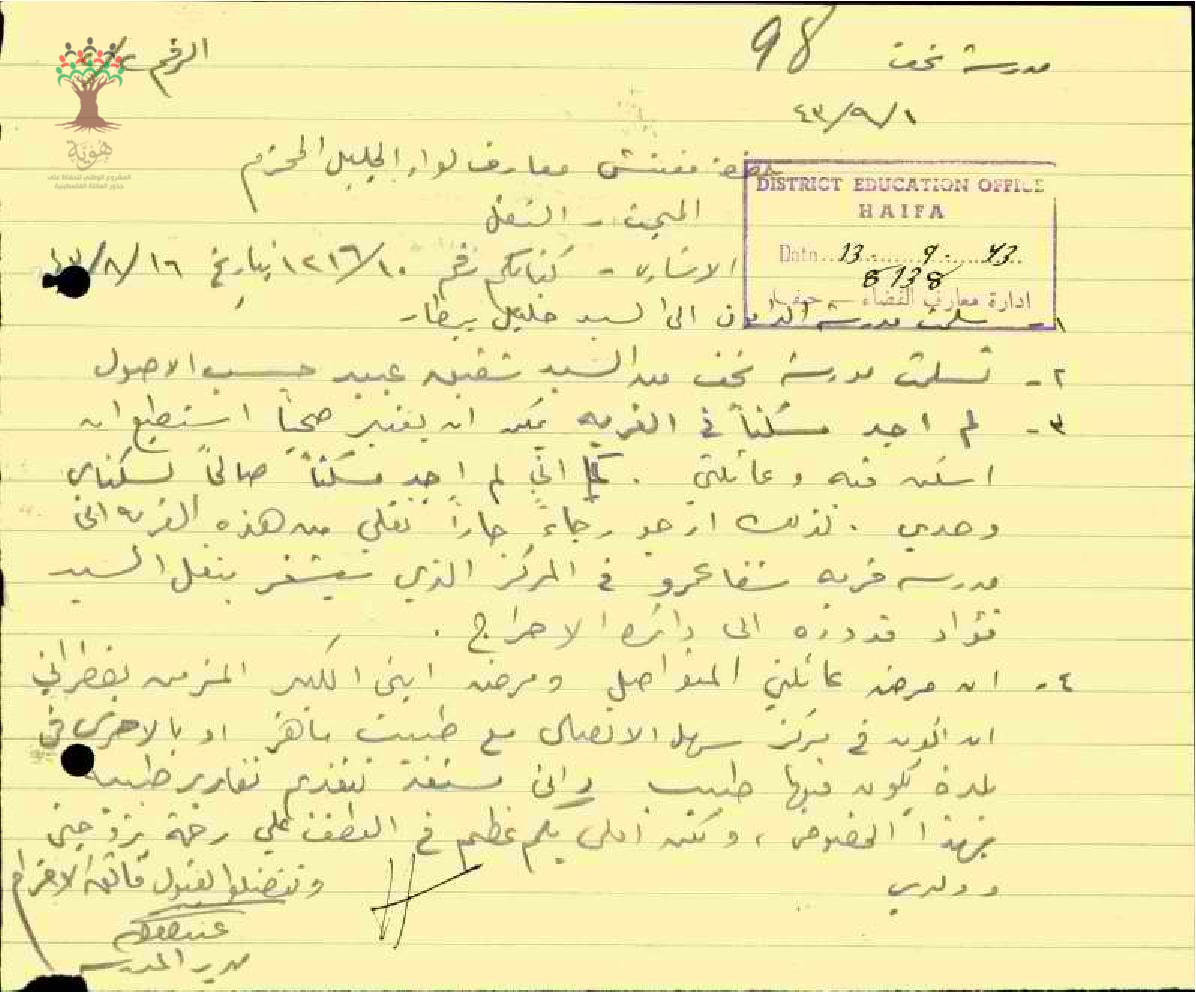 مدرسة نحف
98
الرقم
٤٣/٩/١
حضرة مفتش معارف لواء الجليل المحترم
المبحث - النقل
الاشارة - كتابكم رقم ١٢١٦/١٠ بتاريخ ٤٣/٨/١٦
DISTRICT EDUCATION OFFICE
HAIFA
Date 13. 9. 43
8138
ادارة معارف القضاء - حيفا
١- سلمت مدرسة الدامون الى السيد خليل بيطار
٢- تسلمت مدرسة نحف من السيد شفيق عبيد حسب الاصول
٣- لم اجد مسكناً في القرية يمكن ان يعتبر صحياً استطيع ان
اسكن فيه وعائلتي . كما اني لم اجد مسكناً صالحاً لسكناي
وحدي . لذلك ارجو رجاءً حاراً نقلي من هذه القرية الى
مدرسة قرية شفاعمرو في المركز الذي سيشغر بنقل السيد
فؤاد الى دائرة الاحراج .
٤- ان مرض عائلتي المتواصل ومرض ابني الكبير المزمن يضطراني
ان اكون في مركز سهل الاتصال مع طبيب ماهر او بالاحرى في
بلدة يكون فيها طبيب واني مستعد لتقديم تقارير طبية
بهذا الخصوص ، ولكن املي بكم عظيم في العطف علي رحمة بزوجتي
وولدي
وتفضلوا بقبول فائق الاحترام
مدير المدرسة
هوية
المشروع الوطني للحفاظ على
جذور العائلة الفلسطينية